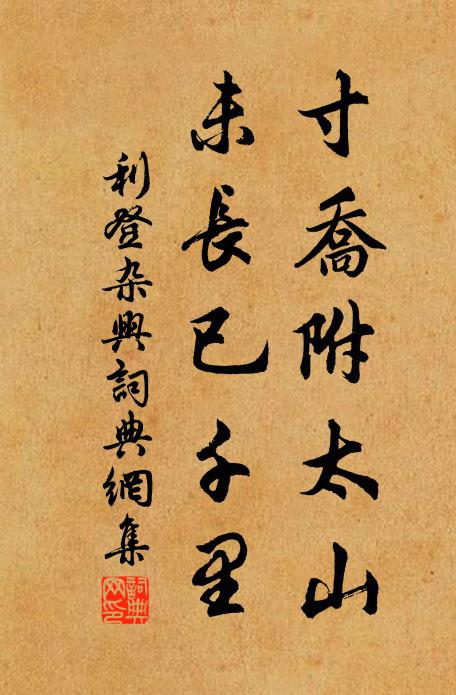 寸喬附太山
未長已千里
利登杂興詞典網集
詞典網印